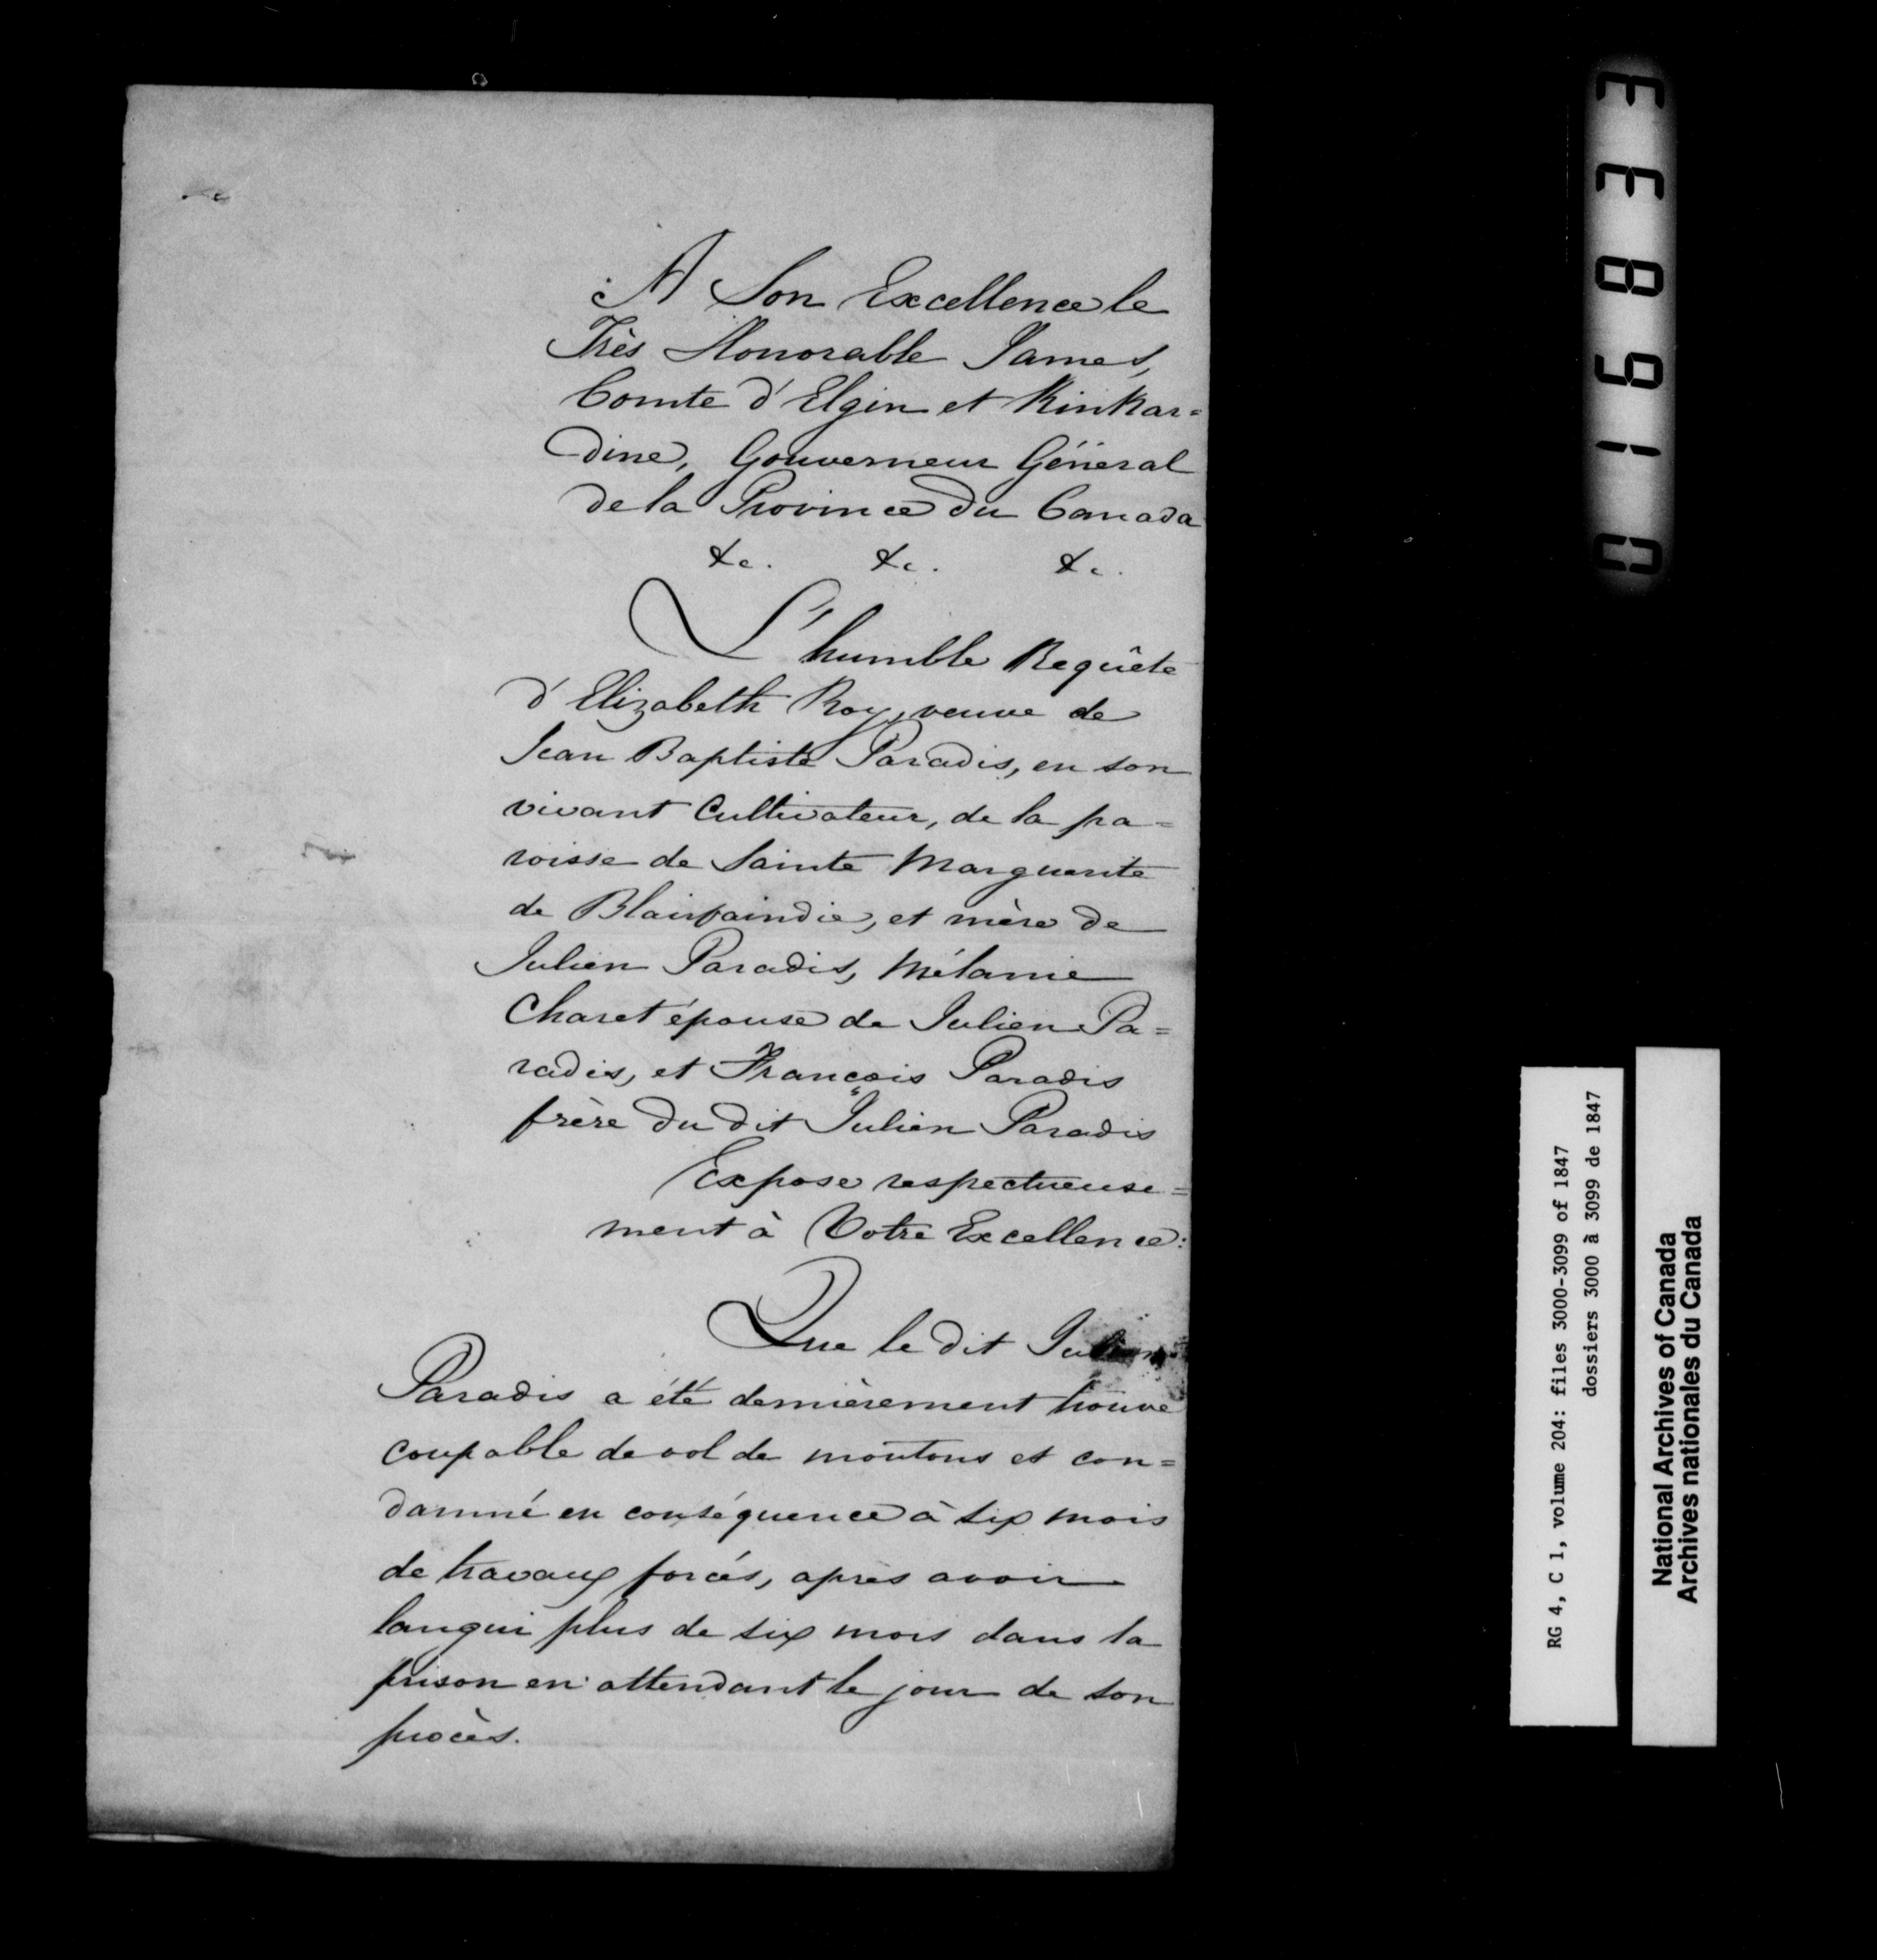 A Son Excellence le
Très Honorable James,
Comte d'Elgin et Kinkar=
dine, Gouverneur Général
de la Province du Canada
&c. &c. &c.
L'humble Requête
d'Elizabeth Roy, veuve de
Jean Baptiste Paradis, en son
vivant Cultivateur, de la pa=
roisse de Sainte Marguerite
de Blairfaindie, et mère de
Julien Paradis, Mélanie
Charet épouse de Julien Pa=
radis, et François Paradis
frère du dit Julien Paradis
Expose respectueuse=
ment à Votre Excellence:
Que le dit Julien
Paradis a été dernièrement trouvé
coupable de vol de moutons et con=
damné en conséquence à six mois
de travaux forcés, après avoir
langui plus de six mois dans la
prison en attendant le jour de son
procès.
019833
RG 4, C 1, volume 204: files 3000-3099 of 1847
dossiers 3000 à 3099 de 1847
National Archives of Canada
Archives nationales du Canada